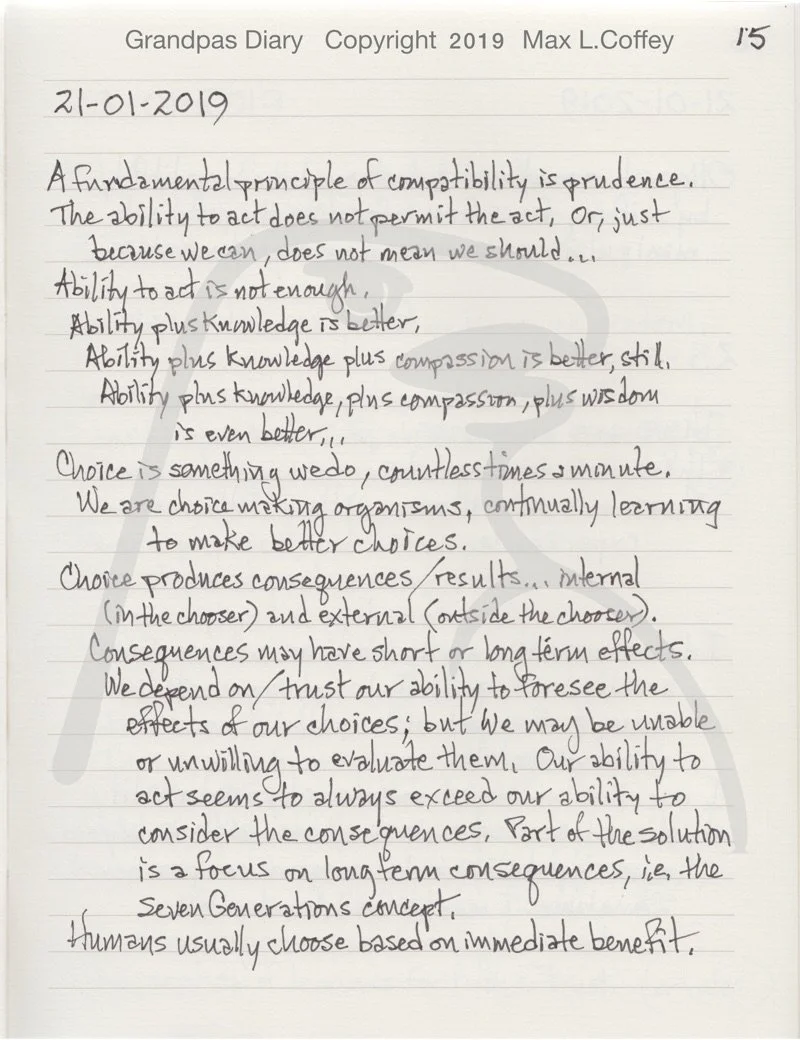 Grandpas Diary Copyright 2019 Max L.Coffey 15
21-01-2019
A fundamental principle of compatibility is prudence.
The ability to act does not permit the act, Or, just
because we can, does not mean we should...
Ability to act is not enough.
Ability plus Knowledge is better,
Ability plus Knowledge plus compassion is better, still.
Ability plus Knowledge, plus compassion, plus wisdom
is even better...
Choice is something we do, countless times a minute.
We are choice making organisms, continually learning
to make better choices.
Choice produces consequences/results... internal
(in the chooser) and external (outside the chooser).
Consequences may have short or long term effects.
We depend on/trust our ability to foresee the
effects of our choices; but We may be unable
or unwilling to evaluate them. Our ability to
act seems to always exceed our ability to
consider the consequences. Part of the solution
is a focus on long term consequences, i.e. the
Seven Generations concept.
Humans usually choose based on immediate benefit.